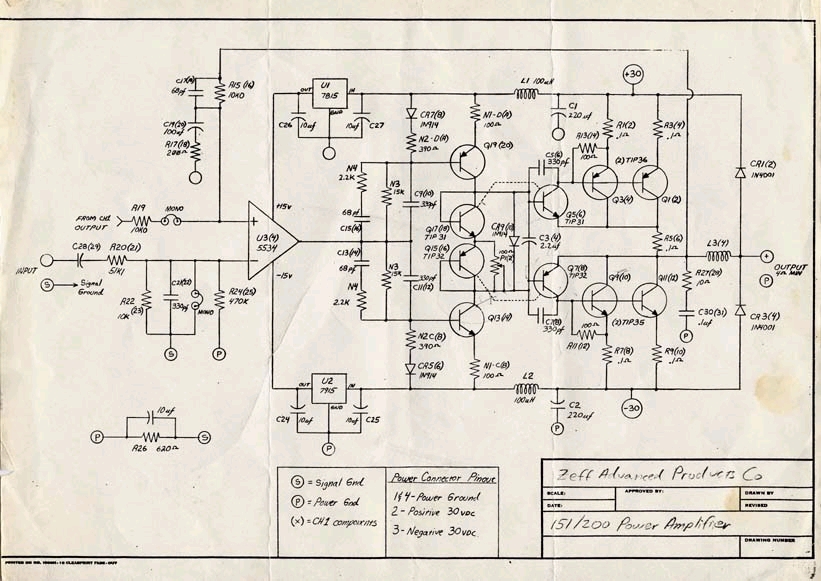 C17(4)
68pf
R15 (16)
10KΩ
C19(20)
100uf
R17(18)
200Ω
OUT
U1
7815
IN
GND
C26
10uf
10uf
C27
L1 100uH
+30
C1
220uf
CR7(8)
1N914
N2-D(8)
390Ω
N1-D(8)
100Ω
Q19(20)
N4
2.2K
N3
15K
C9(10)
330pf
68pf
C15(16)
C5(6)
330pf
R13(14)
100Ω
R1(2)
.1Ω
R3(4)
.1Ω
(2) TIP36
Q3(4)
Q1(2)
Q5(6)
TIP31
CR1(2)
1N4001
FROM CH1
OUTPUT
R19
10KΩ
MONO
+15v
U3(4)
5534
-15v
Q17(18)
TIP 31
Q15(16)
TIP32
CR9(10)
1N914
P1(2)
C3(4)
2.2uf
R5(6)
.1Ω
L3(4)
OUTPUT
4Ω MIN
P
C28(29)
R20(21)
51KΩ
INPUT
S
Signal
Ground
R22
(23)
10K
C21(22)
330pf
MONO
R24(25)
470K
S
P
C13(14)
68pf
N4
2.2K
N3
15K
330pf
C11(12)
Q7(8)
TIP32
C7(8)
330pf
Q9(10)
Q11(12)
(2) TIP35
R27(28)
10Ω
C30(31)
.1uf
P
CR3(4)
1N4001
Q13(14)
N2C(8)
390Ω
CR5(6)
1N914
N1-C(8)
100Ω
100Ω
R11(12)
R7(8)
.1Ω
R9(10)
.1Ω
OUT
U2
7915
IN
GND
C24
10uf
10uf
C25
P
L2
100uH
C2
220uf
P
-30
10uf
P
S
R26 620Ω
S = Signal Gnd
P = Power Gnd
(x) = CH1 components
Power Connector Pinout
1&4-Power Ground
2-Positive 30vdc
3-Negative 30vdc.
Zeff Advanced Products Co
SCALE:
APPROVED BY:
DRAWN BY
DATE:
REVISED
151/200 Power Amplifier
DRAWING NUMBER